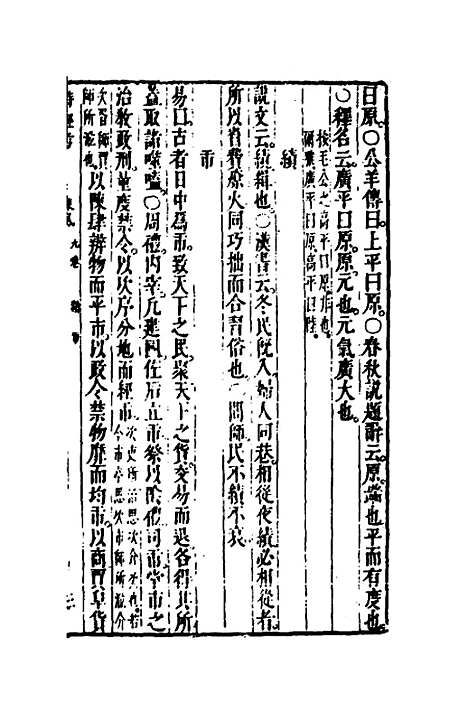 曰原。〇公羊傳曰上平曰原。〇春秋說題辭云。原。端也平而有度也。
〇釋名云。廣平曰原。原元也。元氣廣大也。
按毛公之高平曰原非也。
爾雅廣平曰原高平曰陸。
績
說文云。績緝也。〇漢書云。冬民旣入。婦人同巷相從夜績必相從者。
所以省費燎火同巧拙而合習俗也。閭師民不績不衰
市
易曰古者日中爲市。致天下之民。聚天下之貨。交易而退各得其所
蓋取諸噬嗑。〇周禮內宰凡建國。佐后立市祭以陰禮司市掌市之
治敎政刑。量度禁令。以次序分地而經市。
次吏所治思次介次也。若
今市亭思次市師所涖介
次胥師賈
師所涖也。
以陳肆辨物而平市。以政令禁物靡而均市。以商賈阜貨
九卷